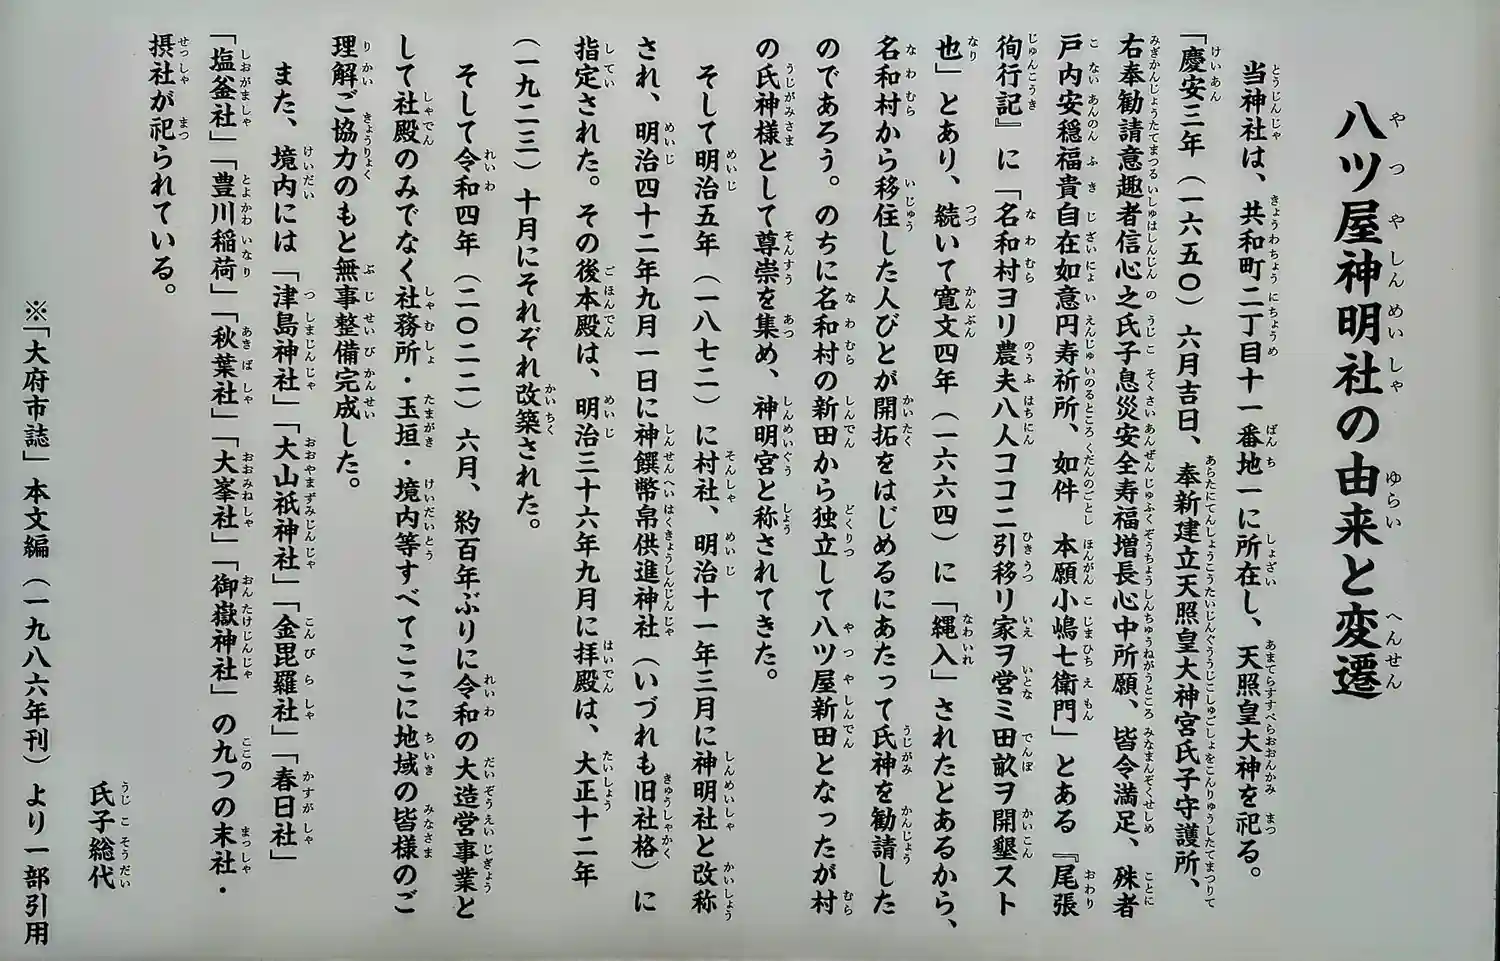 八ツ屋神明社の由来と変遷
当神社は、共和町二丁目十一番地一に所在し、天照皇大神を祀る。
「慶安三年（一六五〇）六月吉日、奉新建立天照皇大神宮氏子守護所、
右奉勧請意趣者信心之氏子息災安全寿福増長心中所願、皆令満足、殊者
戸内安穏福貴自在如意円寿祈所、如件　本願小嶋七衛門」とある『尾張
徇行記』に「名和村ヨリ農夫八人ココニ引移リ家ヲ営ミ田畝ヲ開墾スト
也」とあり、続いて寛文四年（一六六四）に「縄入」されたとあるから、
名和村から移住した人びとが開拓をはじめるにあたって氏神を勧請した
のであろう。のちに名和村の新田から独立して八ツ屋新田となったが村
の氏神様として尊崇を集め、神明宮と称されてきた。
そして明治五年（一八七二）に村社、明治十一年三月に神明社と改称
され、明治四十二年九月一日に神饌幣帛供進神社（いづれも旧社格）に
指定された。その後本殿は、明治三十六年九月に拝殿は、大正十二年
（一九二三）十月にそれぞれ改築された。
そして令和四年（二〇二二）六月、約百年ぶりに令和の大造営事業と
して社殿のみでなく社務所・玉垣・境内等すべてここに地域の皆様のご
理解ご協力のもと無事整備完成した。
また、境内には「津島神社」「大山祇神社」「金毘羅社」「春日社」
「塩釜社」「豊川稲荷」「秋葉社」「大峯社」「御嶽神社」の九つの末社・
摂社が祀られている。
氏子総代
※「大府市誌」本文編（一九八六年刊）より一部引用